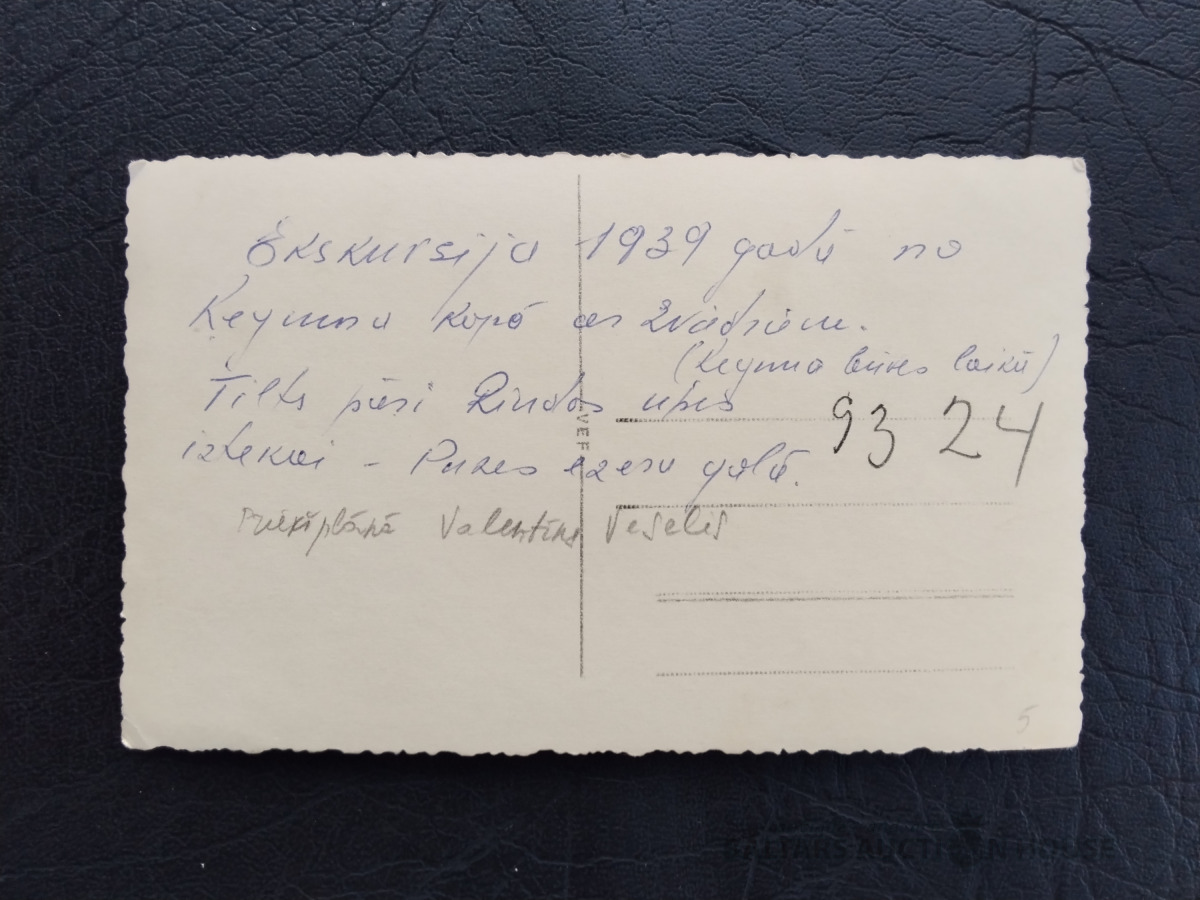 Ekskursija 1939 gadā no
Ķeguma kopā ar Zviedriem.
(Ķeguma būves laikā)
Tilts pāri Rindas upes
iztekai - Puzes ezera galā.
93 24
Priekšplānā Valentīns Vešelis
VEF
5
BALTARS AUCTION HOUSE